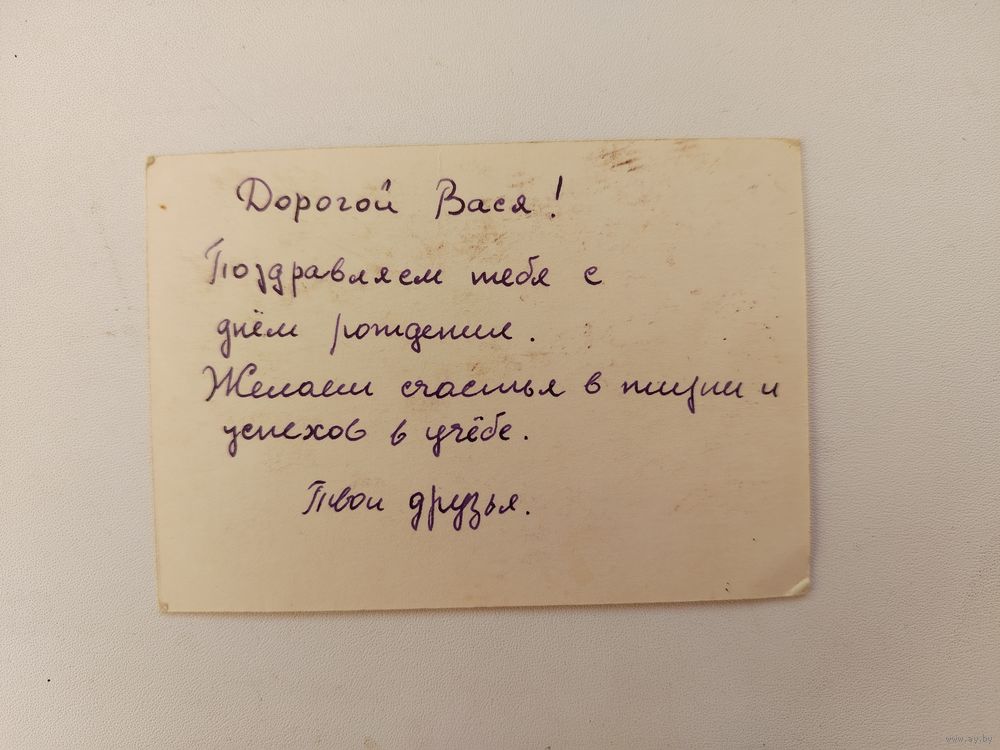 Дорогой Вася!
Поздравляем тебя с
днём рождения.
Желаем счастья в жизни и
успехов в учёбе.
Твои друзья.
www.ay.by